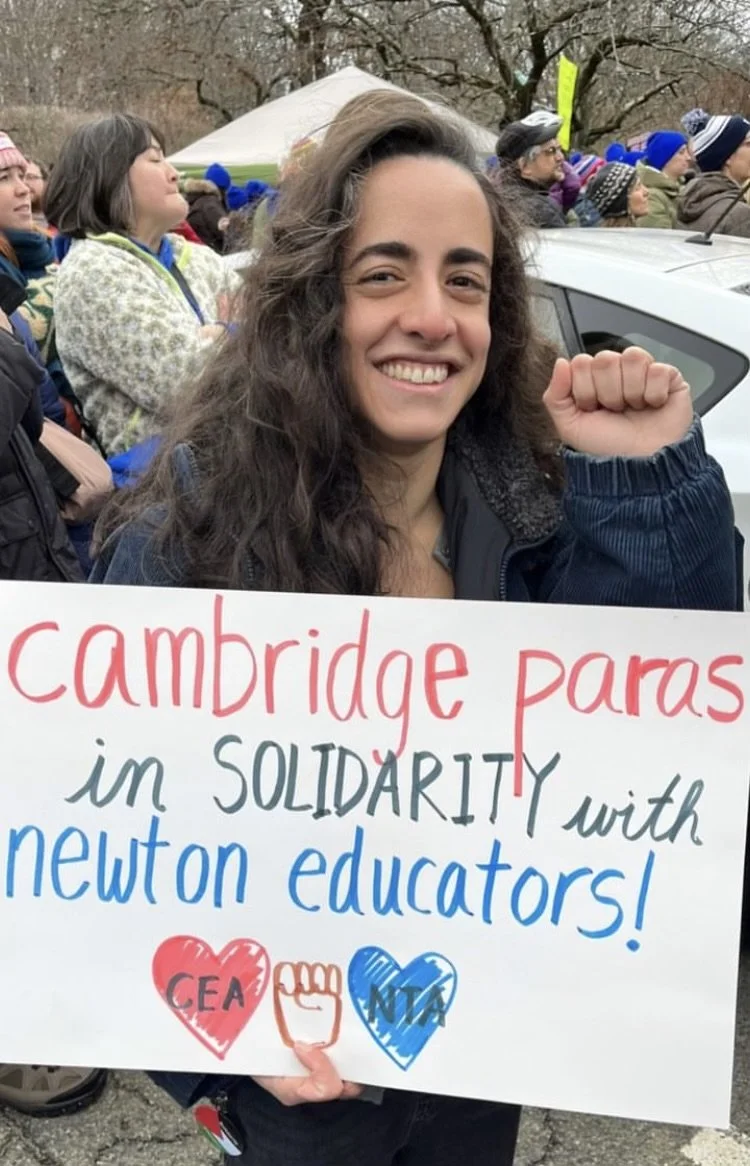 cambridge paras
in SOLIDARITY with
newton educators!
CEA NTA